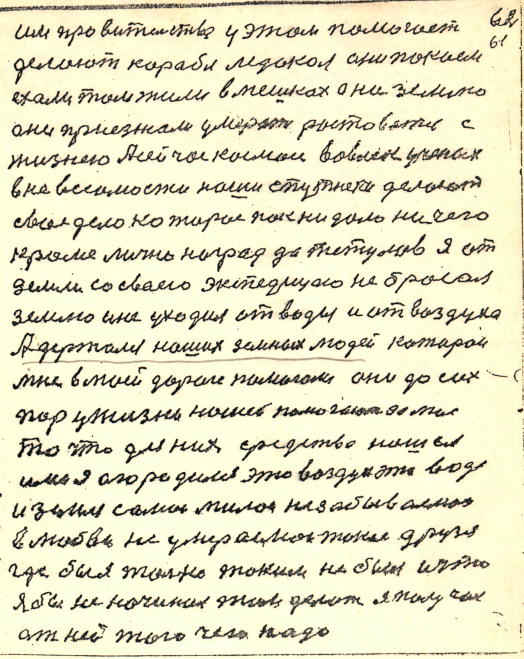 62
61
им провителства у этом помогает
делоют корабл ледокол они покаем
ехали том жили в мешках они землю
они приезнали умерат ростоватся с
жизнею А сейчас космос вовлек ученых
в невесомости наши спутнеки делоют
свое дело которое пок ни дало ничего
кроме лично наград да тетулов Я от
земли со своего экпедицию не бросал
землю и не уходил от воды и от воздуха
А держался наших земных людей которои
мне в моей дороге помогали они до сих
пор у жизни нашей помогают
то что для них средства нашол
ими я огородился это воздух это вода
и земля самое милое незабываемое
в любве не умераемое токие друзя
где был толко токим не был и что
я бы не начинал там делот я получал
от ней того чего надо